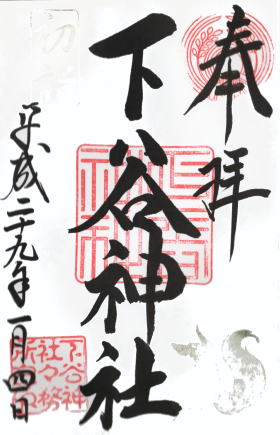 奉拝
下谷神社
平成二十九年一月四日
下谷神
社々務
所印